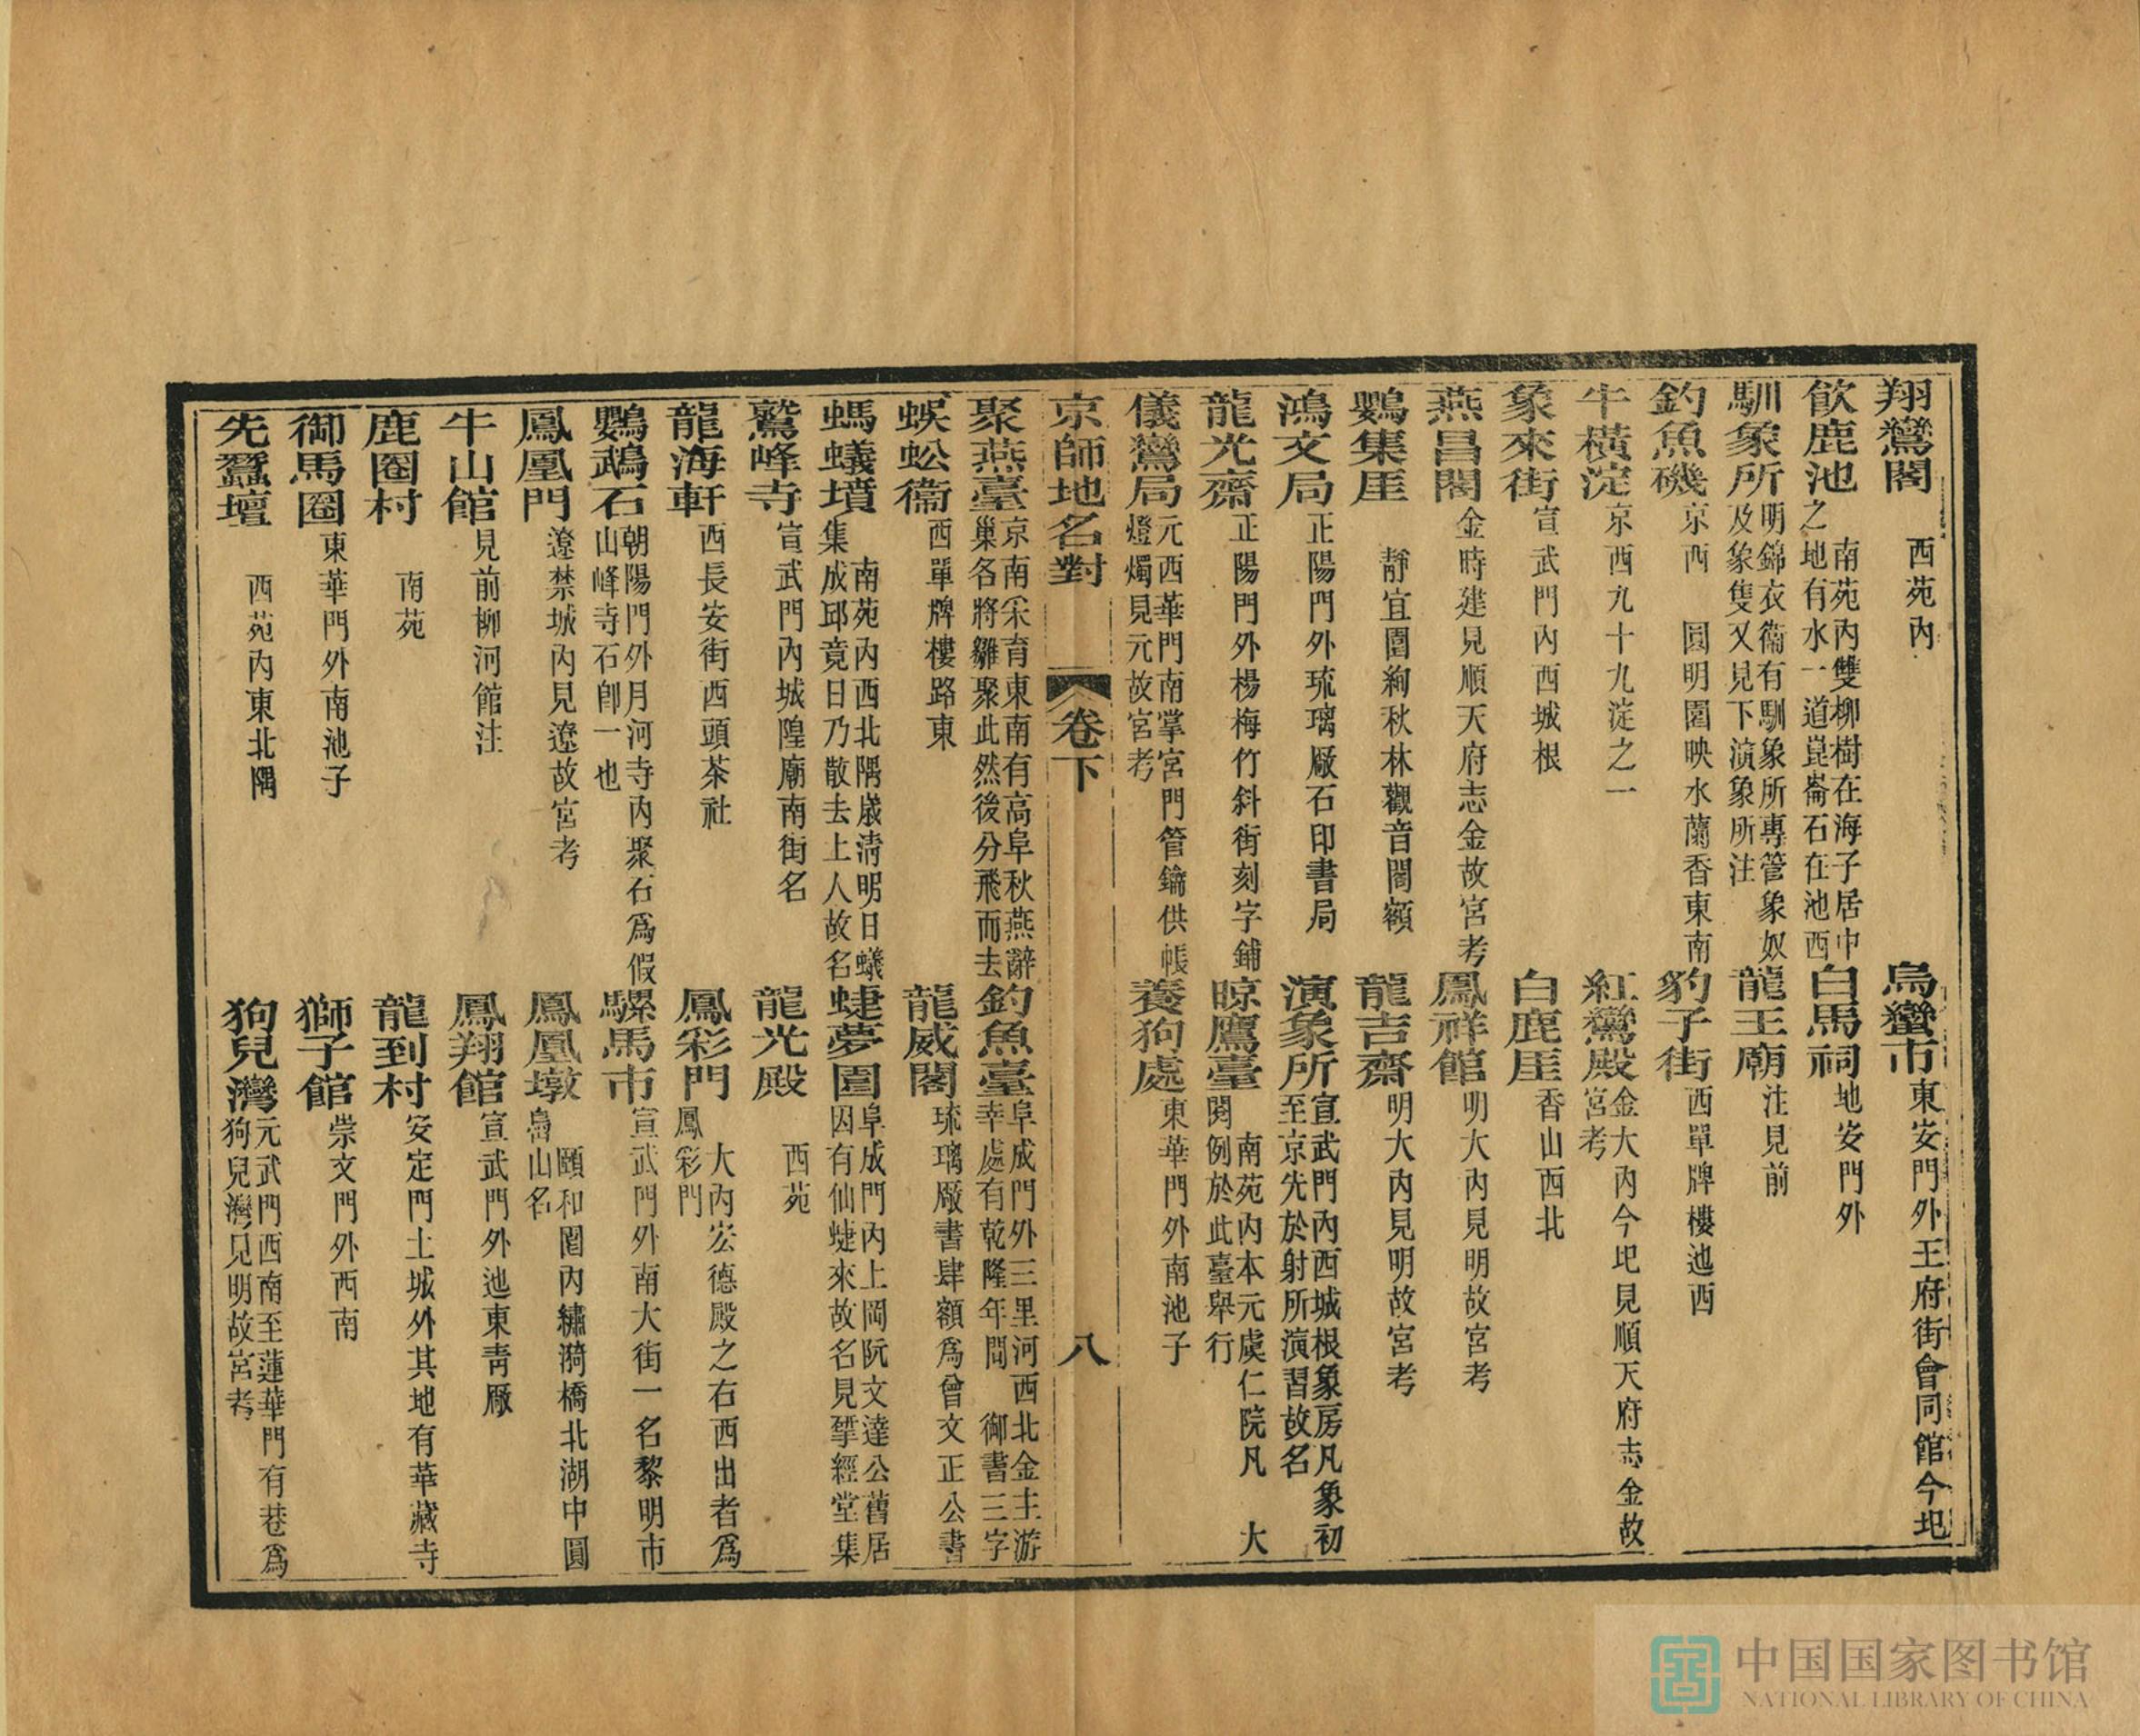 翔鸞閣 西苑內 烏蠻市 東安門外王府街會同館今圯
飲鹿池 南苑內雙柳樹在海子居中之地有水一道崑崙石在池西 白馬祠 地安門外
馴象所 明錦衣衞有馴象所專管象奴及象隻又見下演象所注 龍王廟 注見前
釣魚磯 京西 圓明園映水蘭香東南 豹子街 西單牌樓迤西
牛橫淀 京西九十九淀之一 紅鸞殿 金大內今圯見順天府志金故宮考
象來街 宣武門內西城根 白鹿厓 香山西北
燕昌閣 金時建見順天府志金故宮考 鳳祥館 明大內見明故宮考
鸚集厓 靜宜園絢秋林觀音閣額 龍吉齋 明大內見明故宮考
鴻文局 正陽門外琉璃厰石印書局 演象所 宣武門內西城根象房凡象初至京先於射所演習故名
龍光齋 正陽門外楊梅竹斜街刻字鋪 晾鷹臺 南苑內本元虞仁院凡 大閱例於此臺舉行
儀鸞局 元西華門南掌宮門管鑰供帳燈燭見元故宮考 養狗處 東華門外南池子
京師地名對 卷下 八
聚燕臺 京南采育東南有高阜秋燕辭巢各將雛聚此然後分飛而去 釣魚臺 阜成門外三里河西北金主游幸處有乾隆年間 御書三字
蜈蚣衞 西單牌樓路東 龍威閣 琉璃厰書肆額爲曾文正公書
螞蟻墳 南苑內西北隅歲淸明日蟻集成邱竟日乃散去上人故名 蜨夢園 阜成門內上岡阮文達公舊居因有仙蜨來故名見揅經堂集
鷲峰寺 宣武門內城隍廟南街名 龍光殿 西苑
龍海軒 西長安街西頭茶社 鳳彩門 大內宏德殿之右西出者爲鳳彩門
鸚鵡石 朝陽門外月河寺內聚石爲假山峰寺石卽一也 騾馬市 宣武門外南大街一名黎明市
鳳凰門 遼禁城內見遼故宮考 鳳凰墩 頤和園內繡漪橋北湖中圓島山名
牛山館 見前柳河館注 鳳翔館 宣武門外迤東靑厰
鹿圈村 南苑 龍到村 安定門土城外其地有華藏寺
御馬圈 東華門外南池子 獅子館 崇文門外西南
先蠶壇 西苑內東北隅 狗兒灣 元武門西南至蓮華門有巷爲狗兒灣見明故宮考
中国国家图书馆
NATIONAL LIBRARY OF CHINA